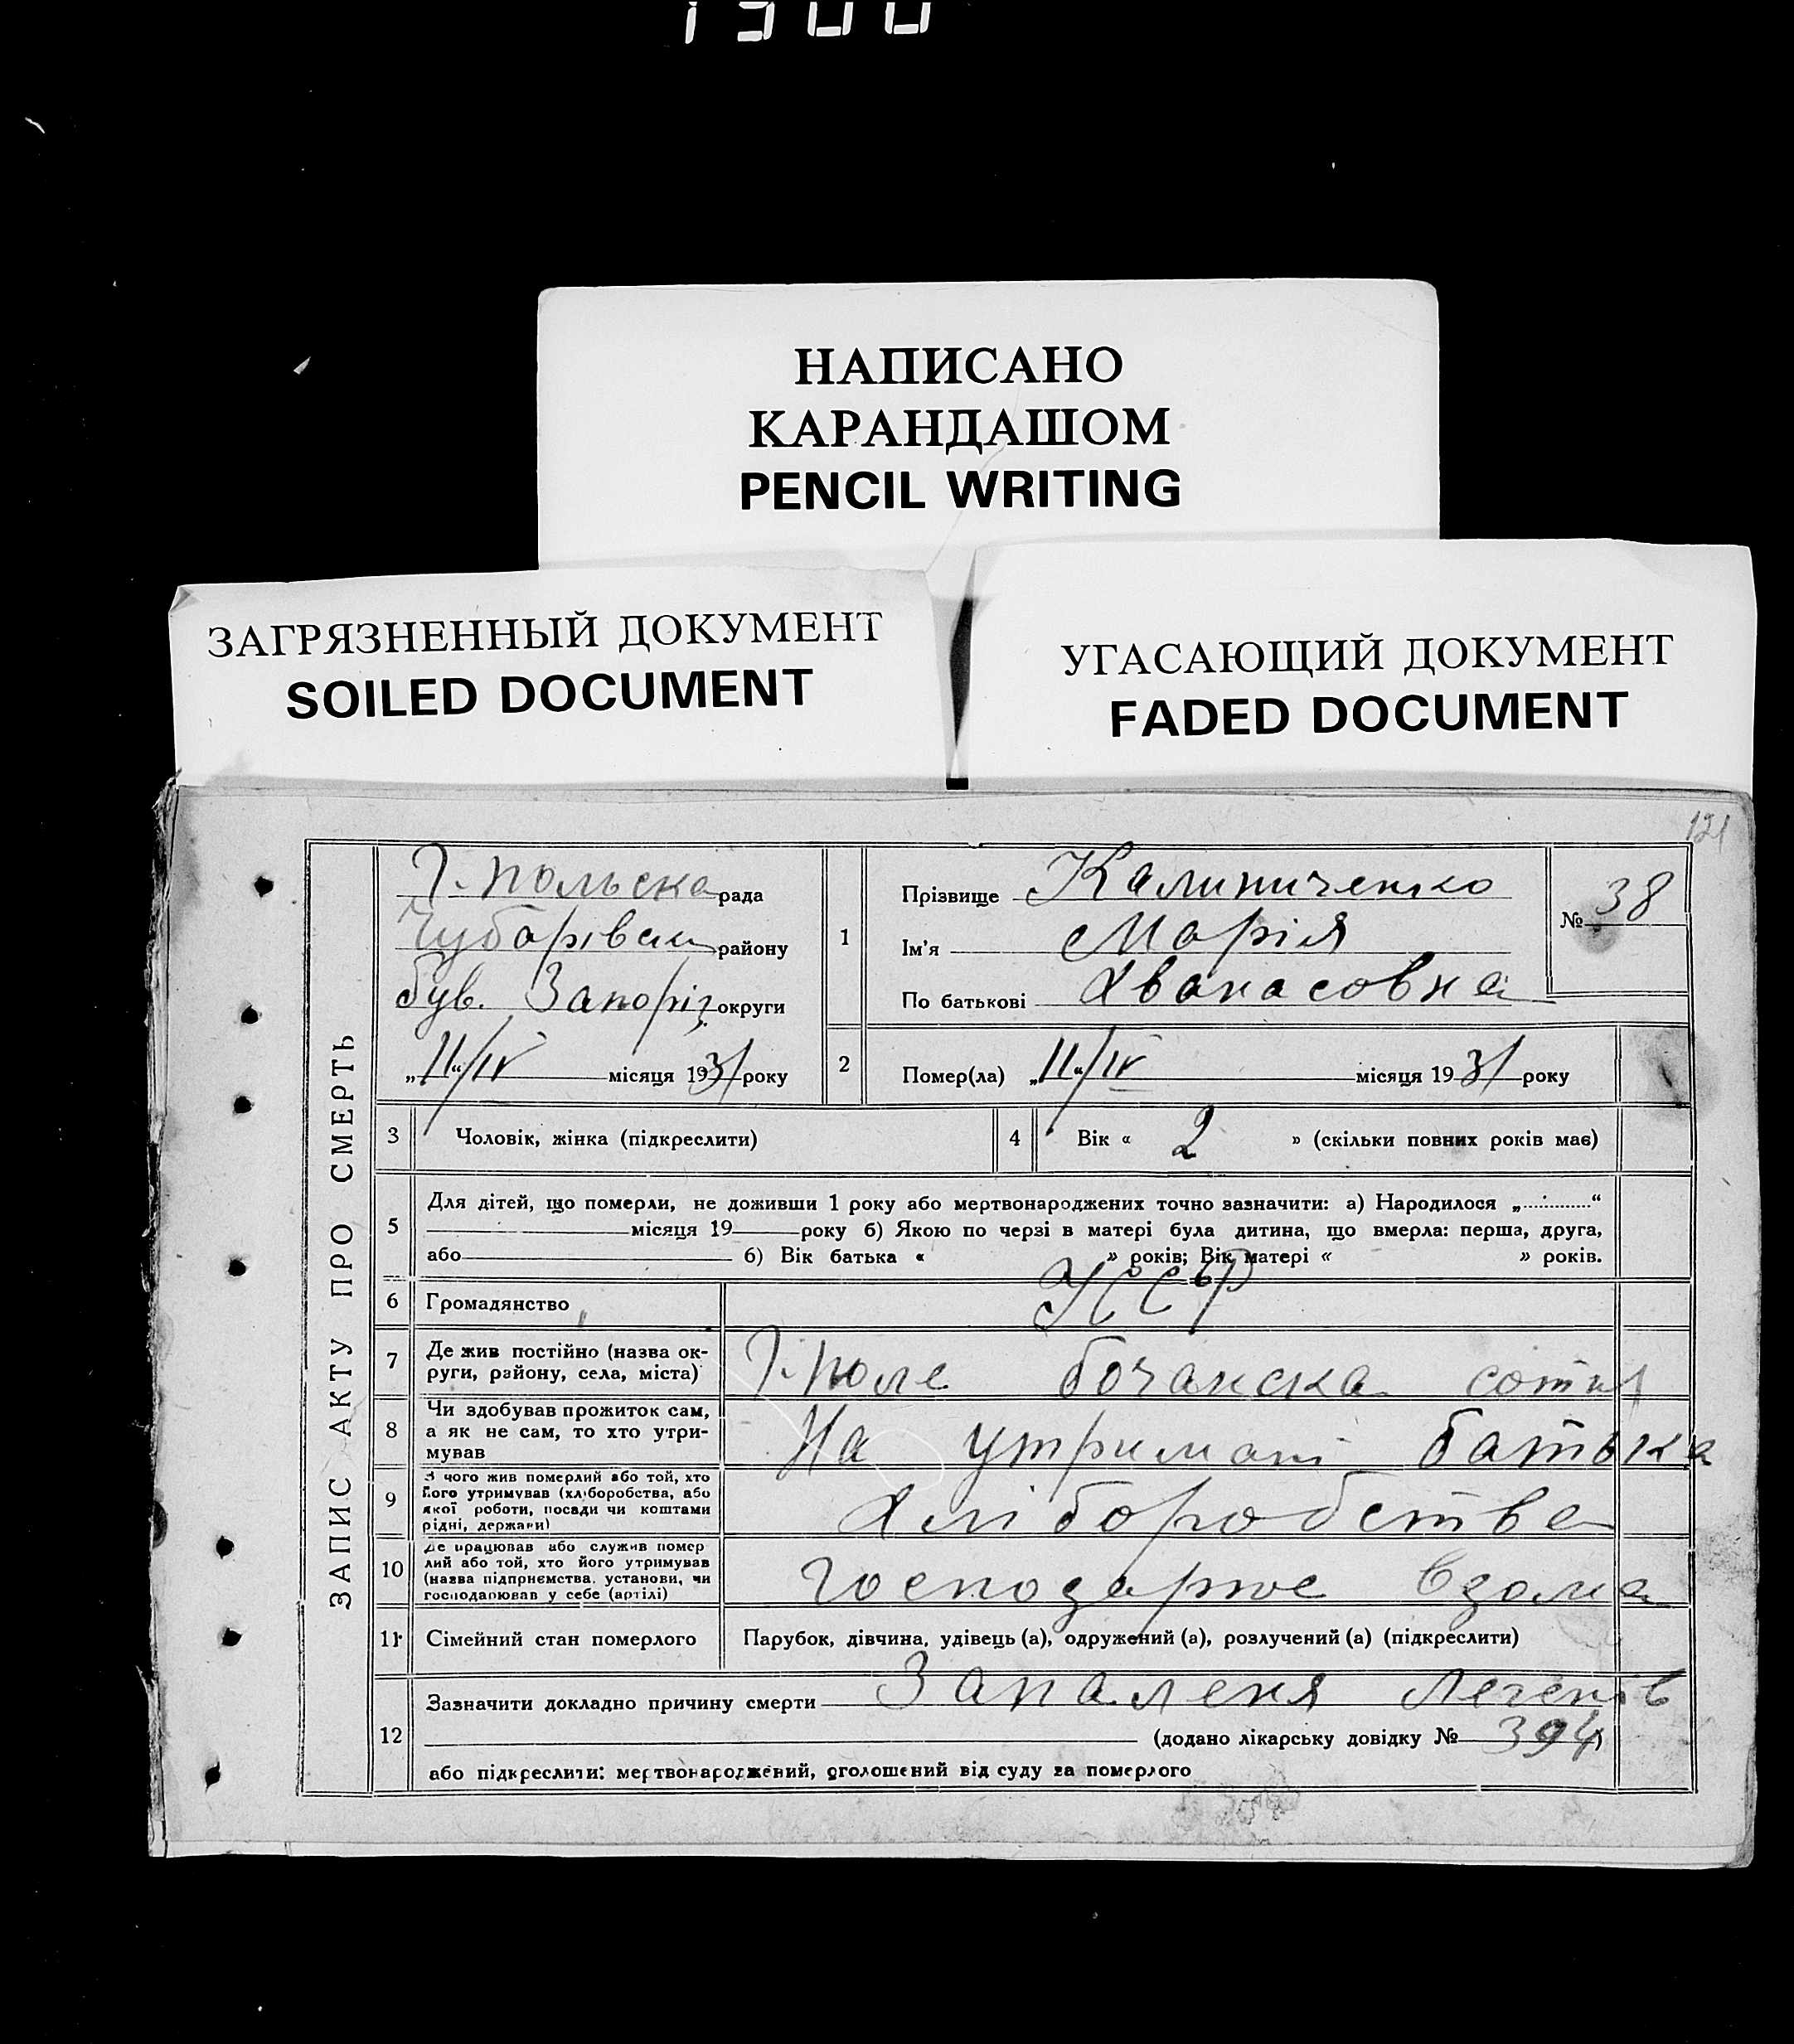 1300
НАПИСАНО
КАРАНДАШОМ
PENCIL WRITING
ЗАГРЯЗНЕННЫЙ ДОКУМЕНТ
SOILED DOCUMENT
УГАСАЮЩИЙ ДОКУМЕНТ
FADED DOCUMENT
121
ЗАПИС АКТУ ПРО СМЕРТЬ
Г. Польска рада
Чубарівськ району
був. Запоріз. округи
„11“/IV місяця 1931 року
1
Прізвище Калиниченко
Ім'я Марія
По батькові Афанасовна
№ 38
2
Помер(ла) „11“/IV місяця 1931 року
3 Чоловік, жінка (підкреслити)
4 Вік « 2 » (скільки повних років має)
5
Для дітей, що померли, не доживши 1 року або мертвонароджених точно зазначити: а) Народилося „..........“
місяця 19 року б) Якою по черзі в матері була дитина, що вмерла: перша, друга,
або б) Вік батька « » років; Вік матері « » років.
6 Громадянство УССР
7
Де жив постійно (назва ок-
руги, району, села, міста)
Г. Поле бочанска сотня
8
Чи здобував прожиток сам,
а як не сам, то хто утри-
мував
На утримані батька
9
З чого жив померлий або той, хто
його утримував (хліборобства, або
якої роботи, посади чи коштами
рідні, держави)
Хліборобства
10
Де працював або служив помер
лий або той, хто його утримував
(назва підприємства, установи, чи
господарював у себе (артілі)
Господарює вдома
11 Сімейний стан померлого
Парубок, дівчина, удівець (а), одружений (а), розлучений (а) (підкреслити)
12
Зазначити докладно причину смерти Запаленя легенів
(додано лікарську довідку № 394)
або підкреслити: мертвонароджений, оголошений від суду за померлого